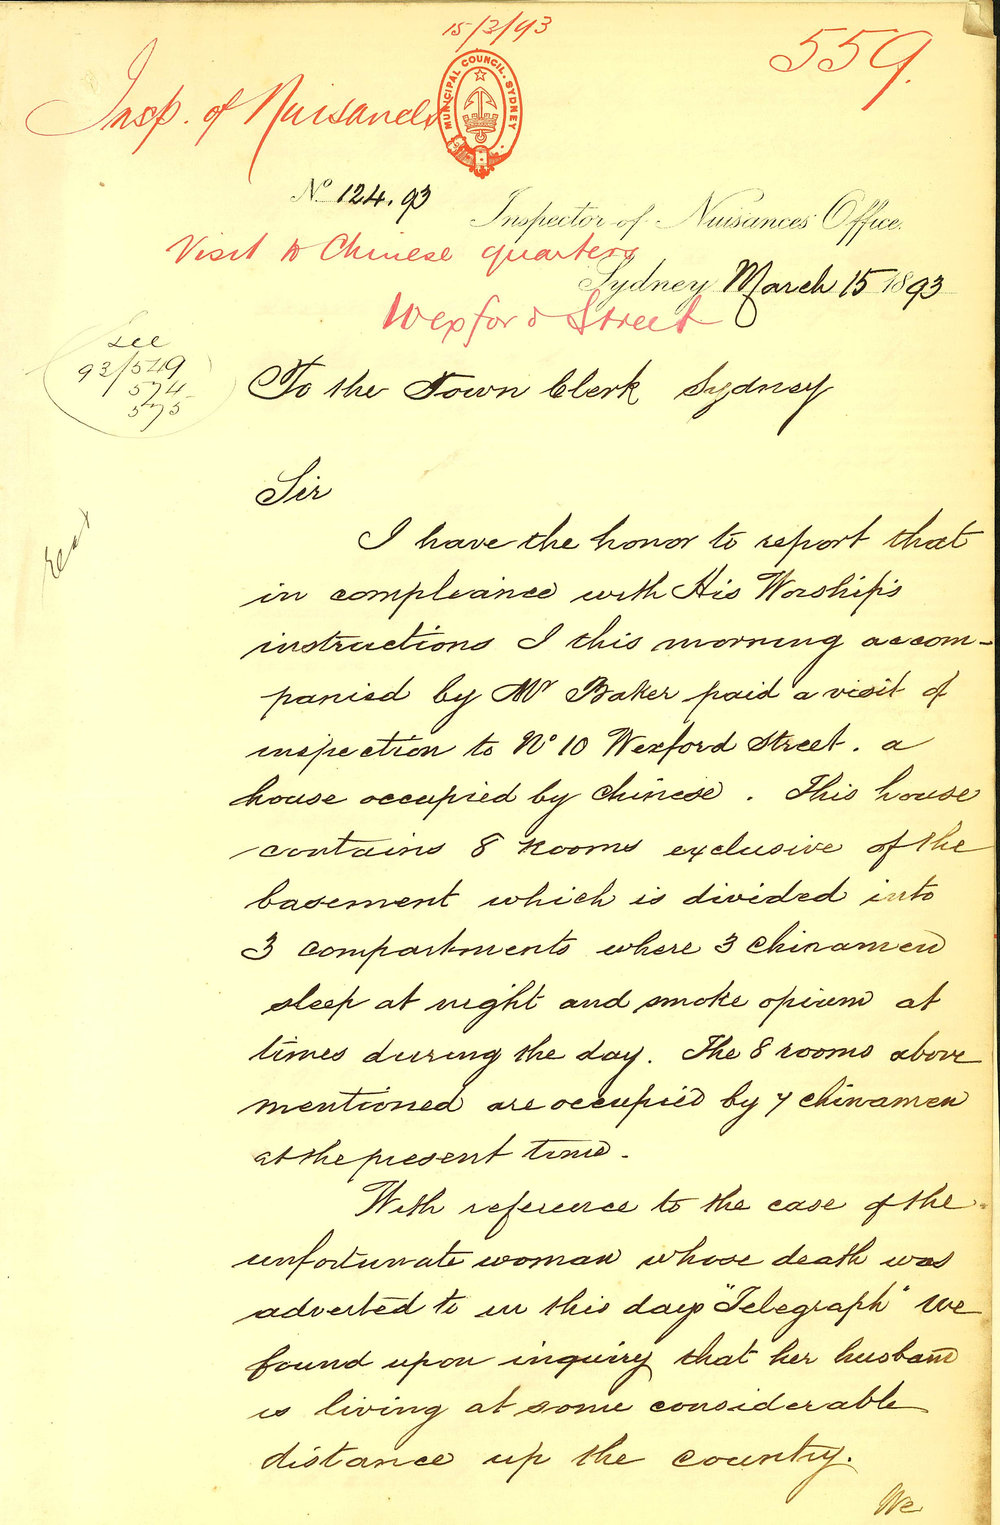 15/3/93
559.
Insp. of Nuisances
MUNICIPAL COUNCIL. SYDNEY
No 124.93
Inspector of Nuisances Office.
Visit to Chinese quarters
Sydney March 15 1893
Wexford Street
see
93/549
574
575
To the Town Clerk Sydney
Sir
I have the honor to report that
in compliance with His Worship's
instructions I this morning accom-
panied by Mr Baker paid a visit of
inspection to No 10 Wexford Street. a
house occupied by Chinese. This house
contains 8 rooms exclusive of the
basement which is divided into
3 compartments where 3 Chinamen
sleep at night and smoke opium at
times during the day. The 8 rooms above
mentioned are occupied by 7 Chinamen
at the present time.
With reference to the case of the
unfortunate woman whose death was
adverted to in this days "Telegraph" we
found upon inquiry that her husband
is living at some considerable
distance up the country.
We